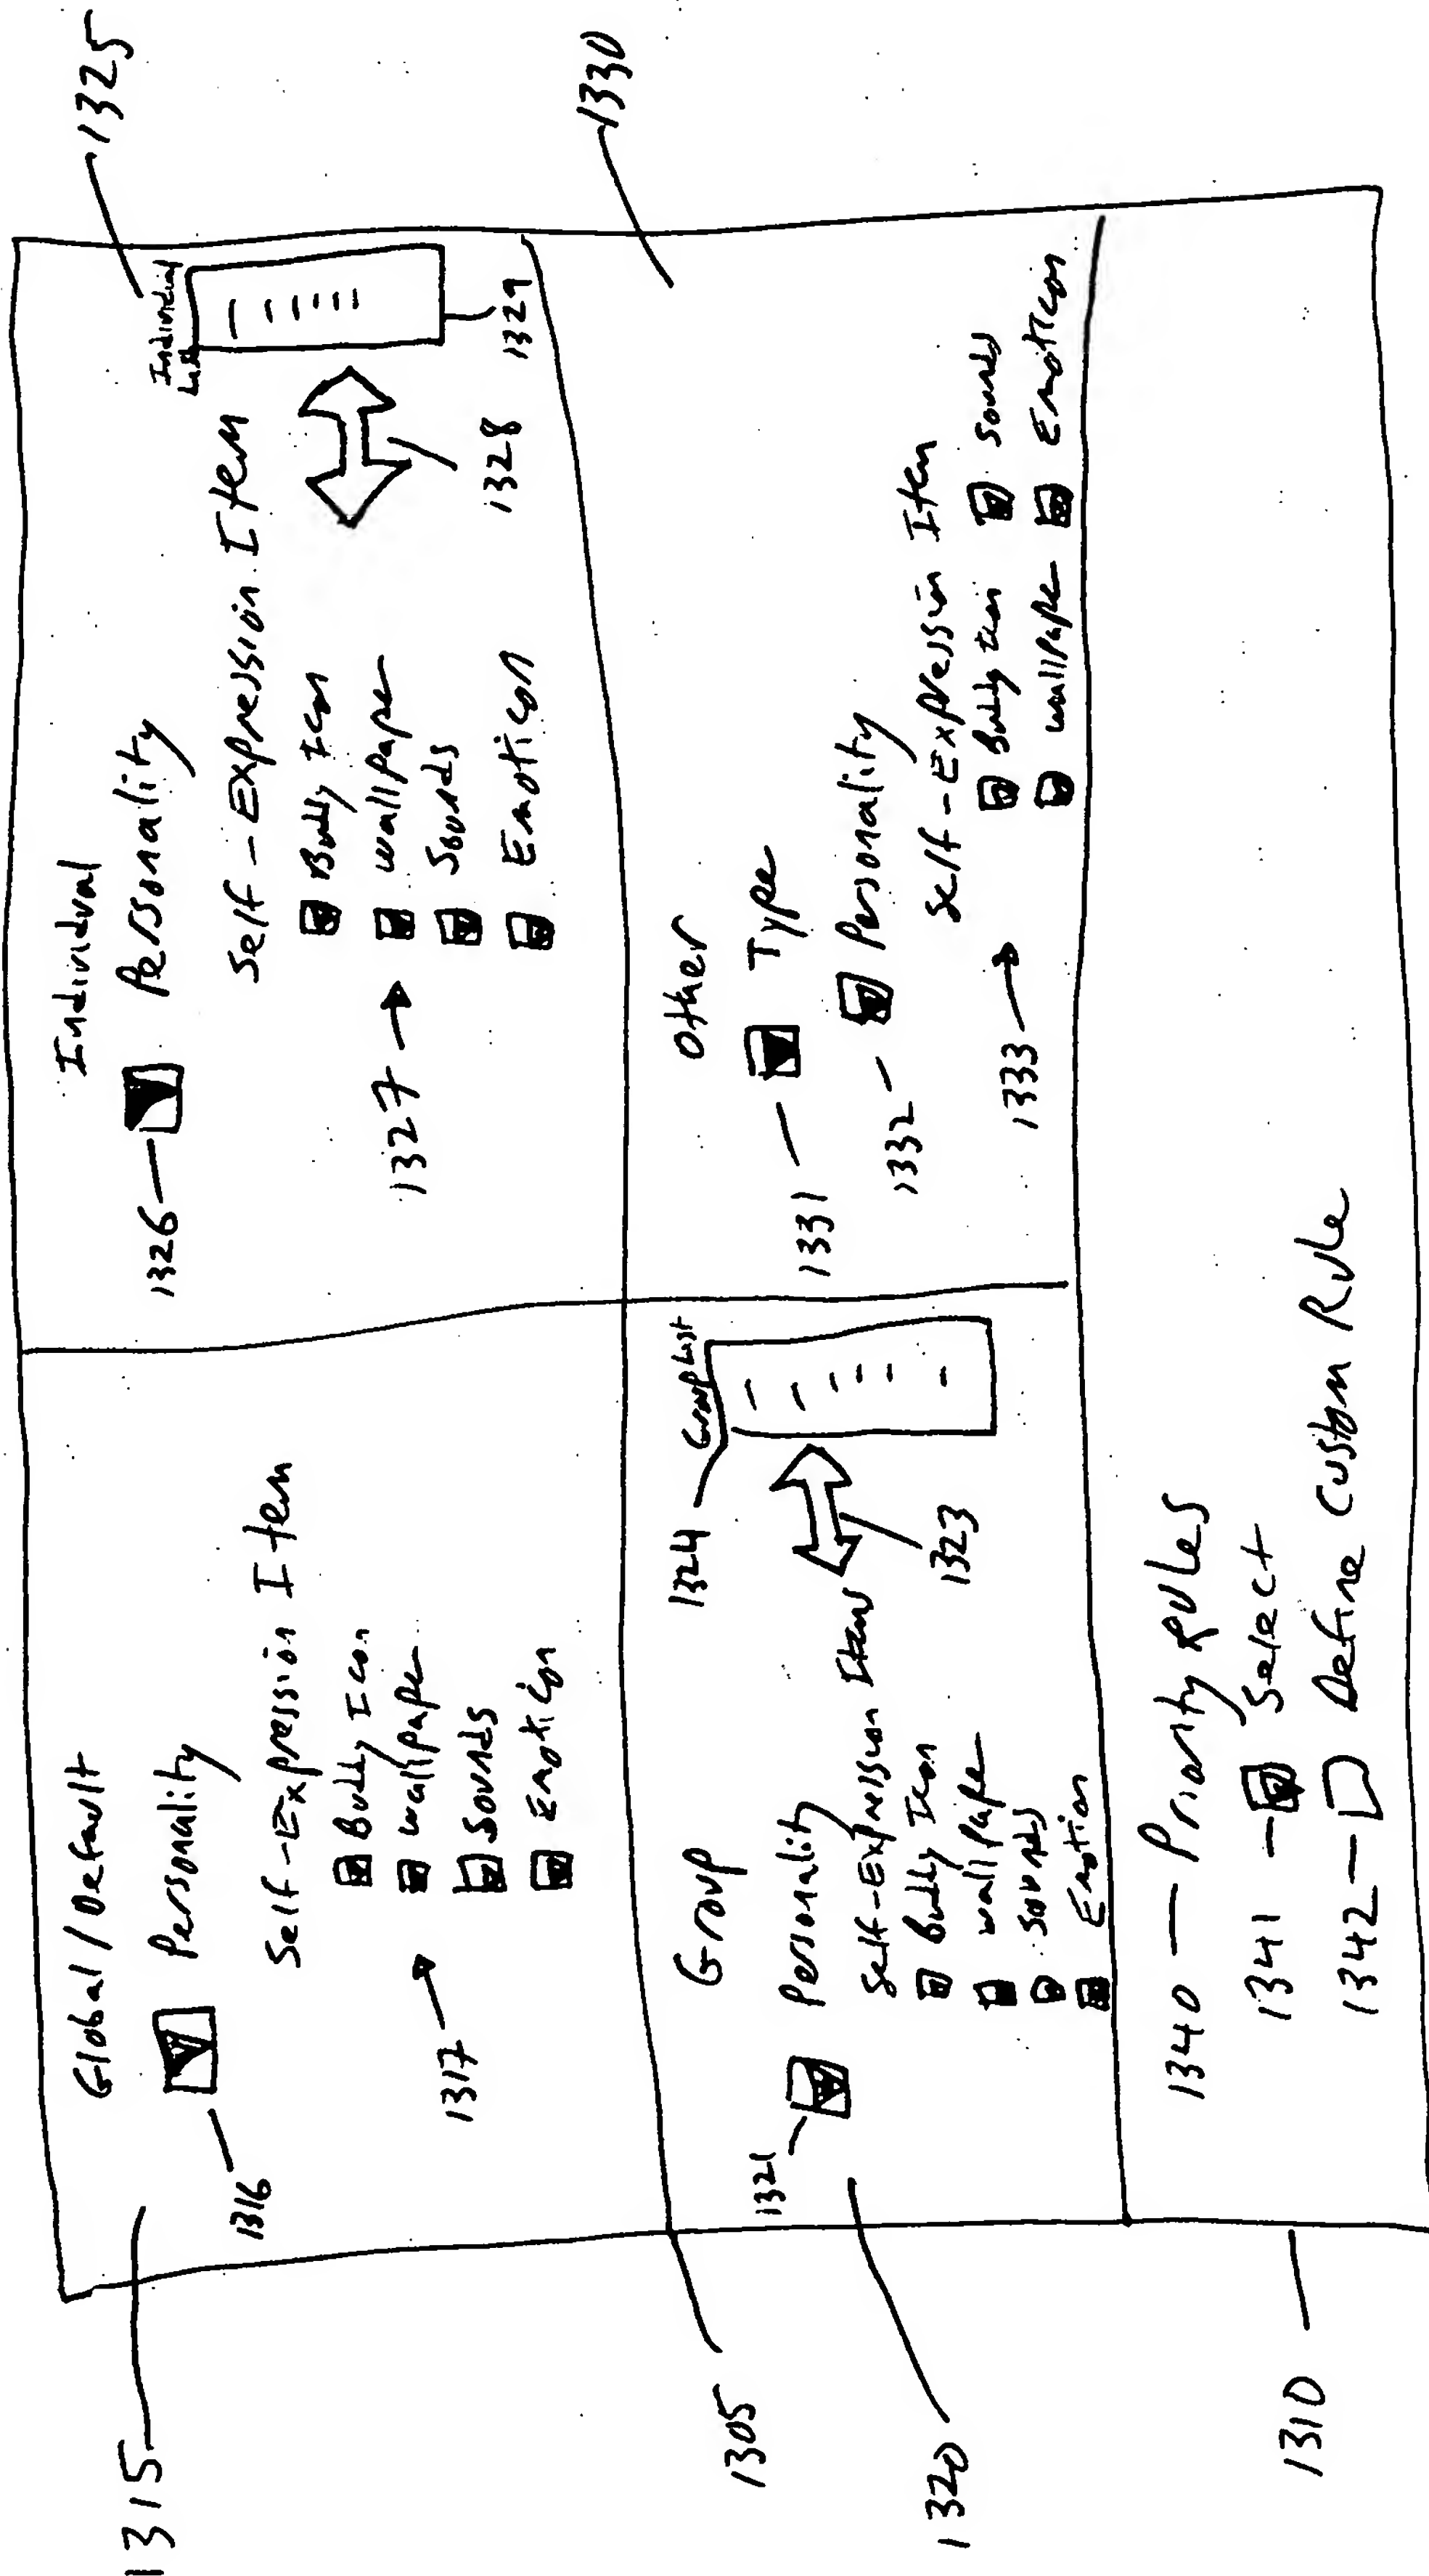 1315
Global/Default
1316
Personality
Self-Expression Item
1317
Buddy Icon
wallpaper
Sounds
Emoticon
1325
Individual
1326
Personality
Self-Expression Item
1327
Buddy Icon
wallpaper
Sounds
Emoticon
Individual
List
1328
1329
1305
1320
Group
1321
Personality
Self-Expression Item
Buddy Icon
wallpaper
Sounds
1324
Group List
1323
1330
Other
1331
Type
1332
Personality
Self-Expression Item
1333
Buddy Icon
Sounds
wallpaper
Emoticon
1310
1340
Priority Rules
1341
Select
1342
Define Custom Rule